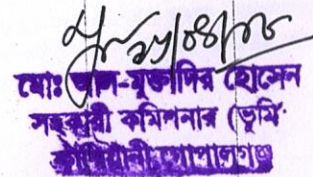 মোঃ আল-মুক্তাদির হোসেন
সহকারী কমিশনার (ভূমি)
কাশিয়ানী, গোপালগঞ্জ